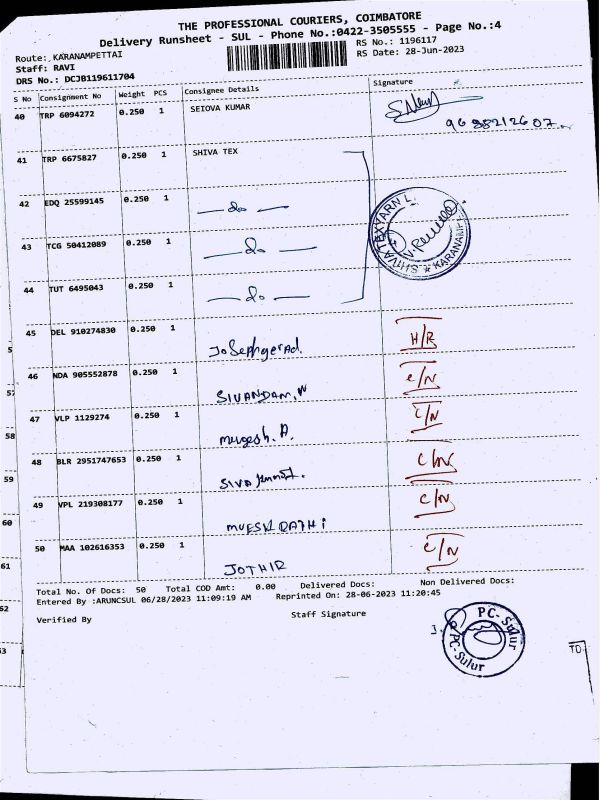 THE PROFESSIONAL COURIERS, COIMBATORE
Delivery Runsheet - SUL - Phone No.:0422-3505555 - Page No.:4
Route: KARANAMPETTAI
RS No.: 1196117
Staff: RAVI
RS Date: 28-Jun-2023
DRS No.: DCJB119611704
S No Consignment No Weight PCS Consignee Details Signature
40 TRP 6094272 0.250 1 SEIOVA KUMAR
9688212607
41 TRP 6675827 0.250 1 SHIVA TEX
42 EDQ 25599145 0.250 1 — do —
43 TCG 50412089 0.250 1 — do —
44 TUT 6495043 0.250 1 — do —
SHIVA TEXYARN L
KARANAM
45 DEL 910274830 0.250 1 H/R
46 NDA 905552878 0.250 1 SIVANDAM, N C/N
47 VLP 1129274 0.250 1 Mugesh. A. C/N
48 BLR 2951747653 0.250 1 C/N
49 VPL 219308177 0.250 1 C/N
50 MAA 102616353 0.250 1 JOTHIR C/N
Total No. Of Docs: 50 Total COD Amt: 0.00 Delivered Docs: Non Delivered Docs:
Entered By :ARUNCSUL 06/28/2023 11:09:19 AM Reprinted On: 28-06-2023 11:20:45
Verified By Staff Signature
PC-Sulur
PC-Sulur
5
57
58
59
60
61
52
53
TO